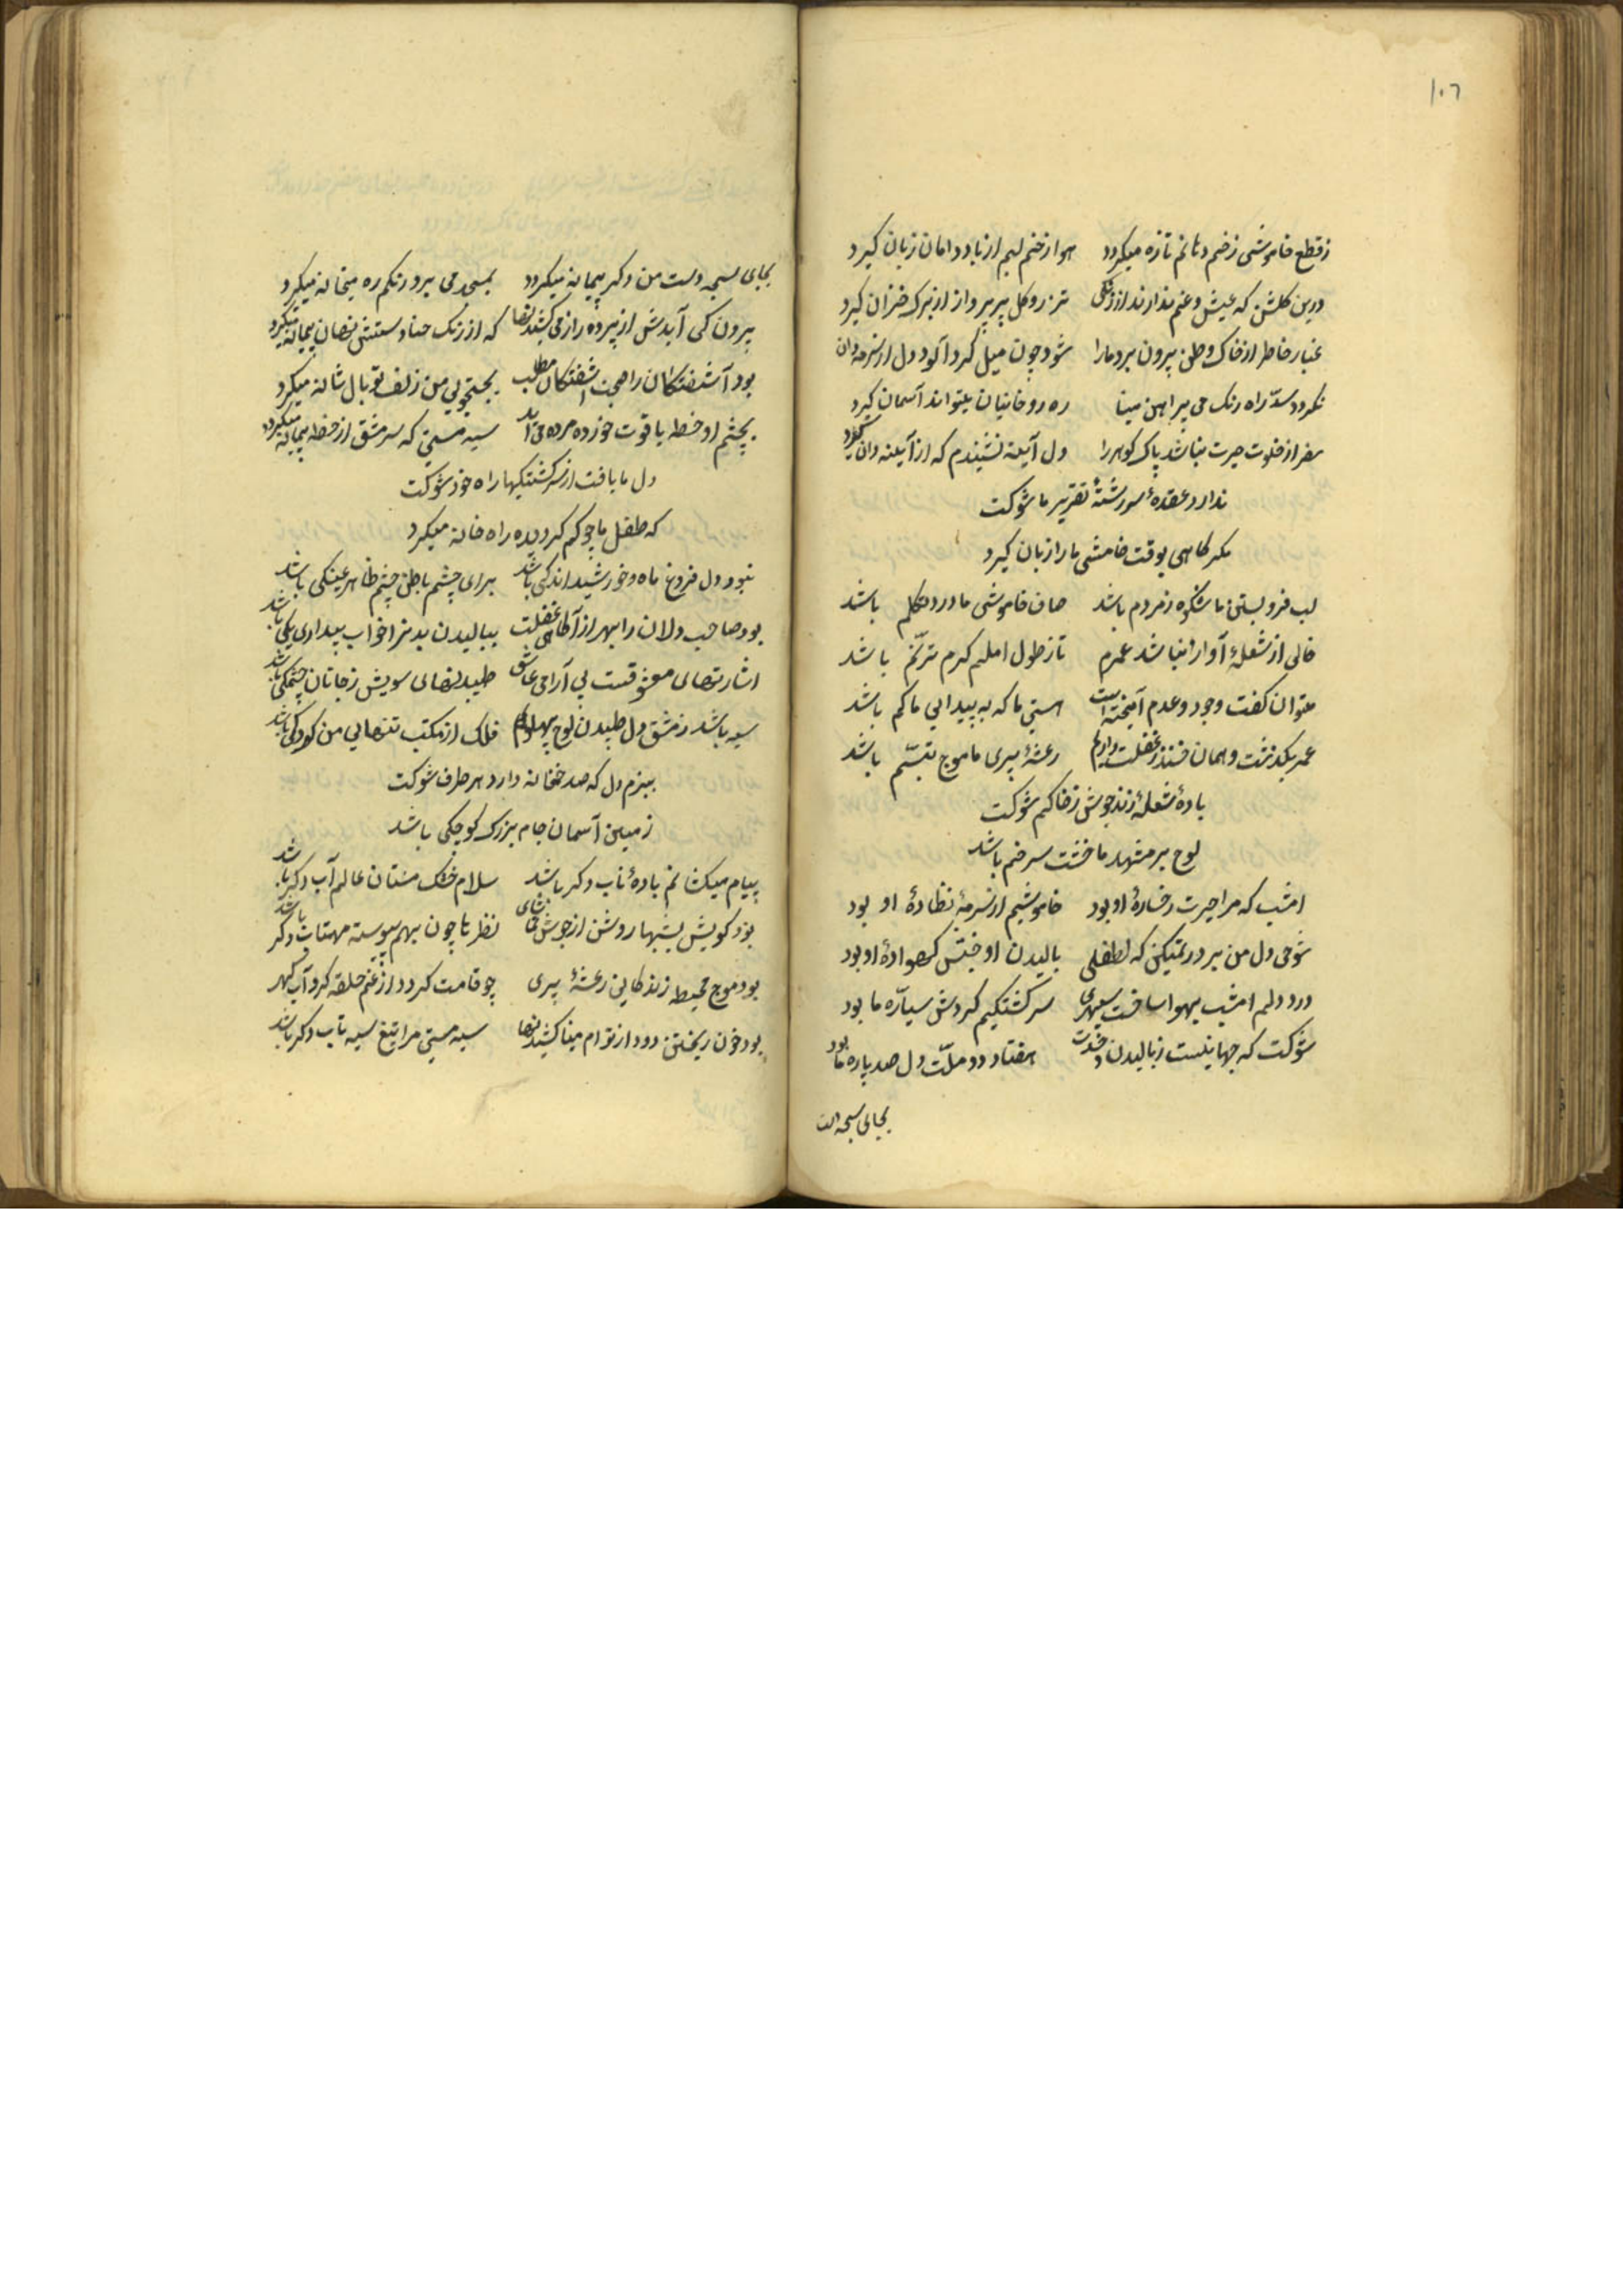 ١٠٦
ز قطع خاموشی زخم دهانم تازه میکردد هوا از خم لبم از باد دامان زبان کیرد
درین کلشن که عیش و غم ندارند از زنکی تذرو کل پر پرواز از برک خزان کیرد
غبار خاطر از خاک وطن بیرون برد مارا شود چون میل کرد آلود دل از سرمه دان
نکردد سد راه رنک می پیراهن مینا ره روحانیان میتواند آسمان کیرد
سفر از خلوت حیرت نباشد پاک کوهر را دل آیینه نشنیدم که از آیینه دان کیرد
ندارد عقدهٔ سررشتهٔ تقریر ما شوکت
مکر کاهی بوقت خامشی ما را زبان کیرد
لب فرو بستن ما شکوه ز مردم باشد صاف خاموشی ما درد تکلم باشد
خالی از شعلهٔ آواز نباشد عمرم تار طول املم کرم ترنّم باشد
میتوان کفت وجود و عدم آمیخته است هستی ما که به پیدایی ما کم باشد
عمر بکذشت و همان خنده ز غفلت دارم رعشهٔ پیری ما موج تبسّم باشد
بادهٔ شعله زند جوش ز خاکم شوکت
لوح بر مشهد ما خشت سر خم باشد
امشب که مرا حیرت رخسارهٔ او بود خاموشیم از سرمهٔ نظارهٔ او بود
شوخی دل من برد بتمکین که لطفلی بالیدن او جنبش کهوارهٔ او بود
درد دلم امشب بهوا ساخت سپهری سرکشتکیم کردش سیّاره ما بود
شوکت که جهانیست ز بالیدن وحدت هفتاد دو ملّت دل صد پاره ما بود
بجای سبحه دست
بجای سبحه دست من دکر پیمانه میکردد بمسجد می برد رنکم ره میخانه میکیرد
برون کی آیدش از پرده راز می کشیدنها که از رنک حنا دستش نهان پیمانه میکیرد
بود آشفتکان را هم آشفتکان مطلب بجستجوی من زلف تو بال شانه میکیرد
بچشم او خط یاقوت خوزده مرده می آید سیه مستی که سرمشق از خط پیمانه میکیرد
دل ما یافت از سرکشتکیها راه خود شوکت
که طفل ما چو کم کردیده راه خانه میکیرد
نبود دل فروغ ماه و خورشید اندکی باشد برای چشم باطن چشم ظاهر عینکی باشد
بود صاحب دلان را بهر از آکاهی غفلت ببالیدن بدنرا خواب بیداری یکی باشد
اشارتهای معشوقست بی آرامی عاشق طپیدنهای سویش ز جانان چشمکی باشد
سیه باشد ز مشق دل طپیدن لوح پهلوام فلک از مکتب تنهایی من کودکی باشد
ببزم دل که صد خمخانه دارد هر طرف شوکت
زمین آسمان جام بزرک کوچکی باشد
پیام میکشانم بادهٔ ناب دکر باشد سلام خشک مستان عالم آب دکر باشد
بود کویش بشبها روشن از جوش نظر تا چون بهم پیوسته مهتاب دکر باشد
بود موج محیط زندکانی رعشهٔ پیری چو قامت کردد از غم حلقه کرد آب کهر
بود خون ریختن دود از توام مینا کشیدنها سیه مستی مرا تیغ سیه تاب دکر باشد